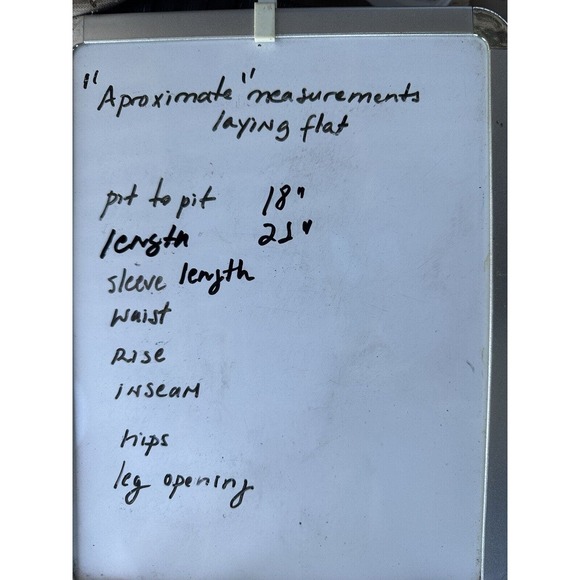 "Aproximate" measurements
laying flat
pit to pit 18"
length 21"
sleeve length
waist
Rise
inseam
hips
leg opening